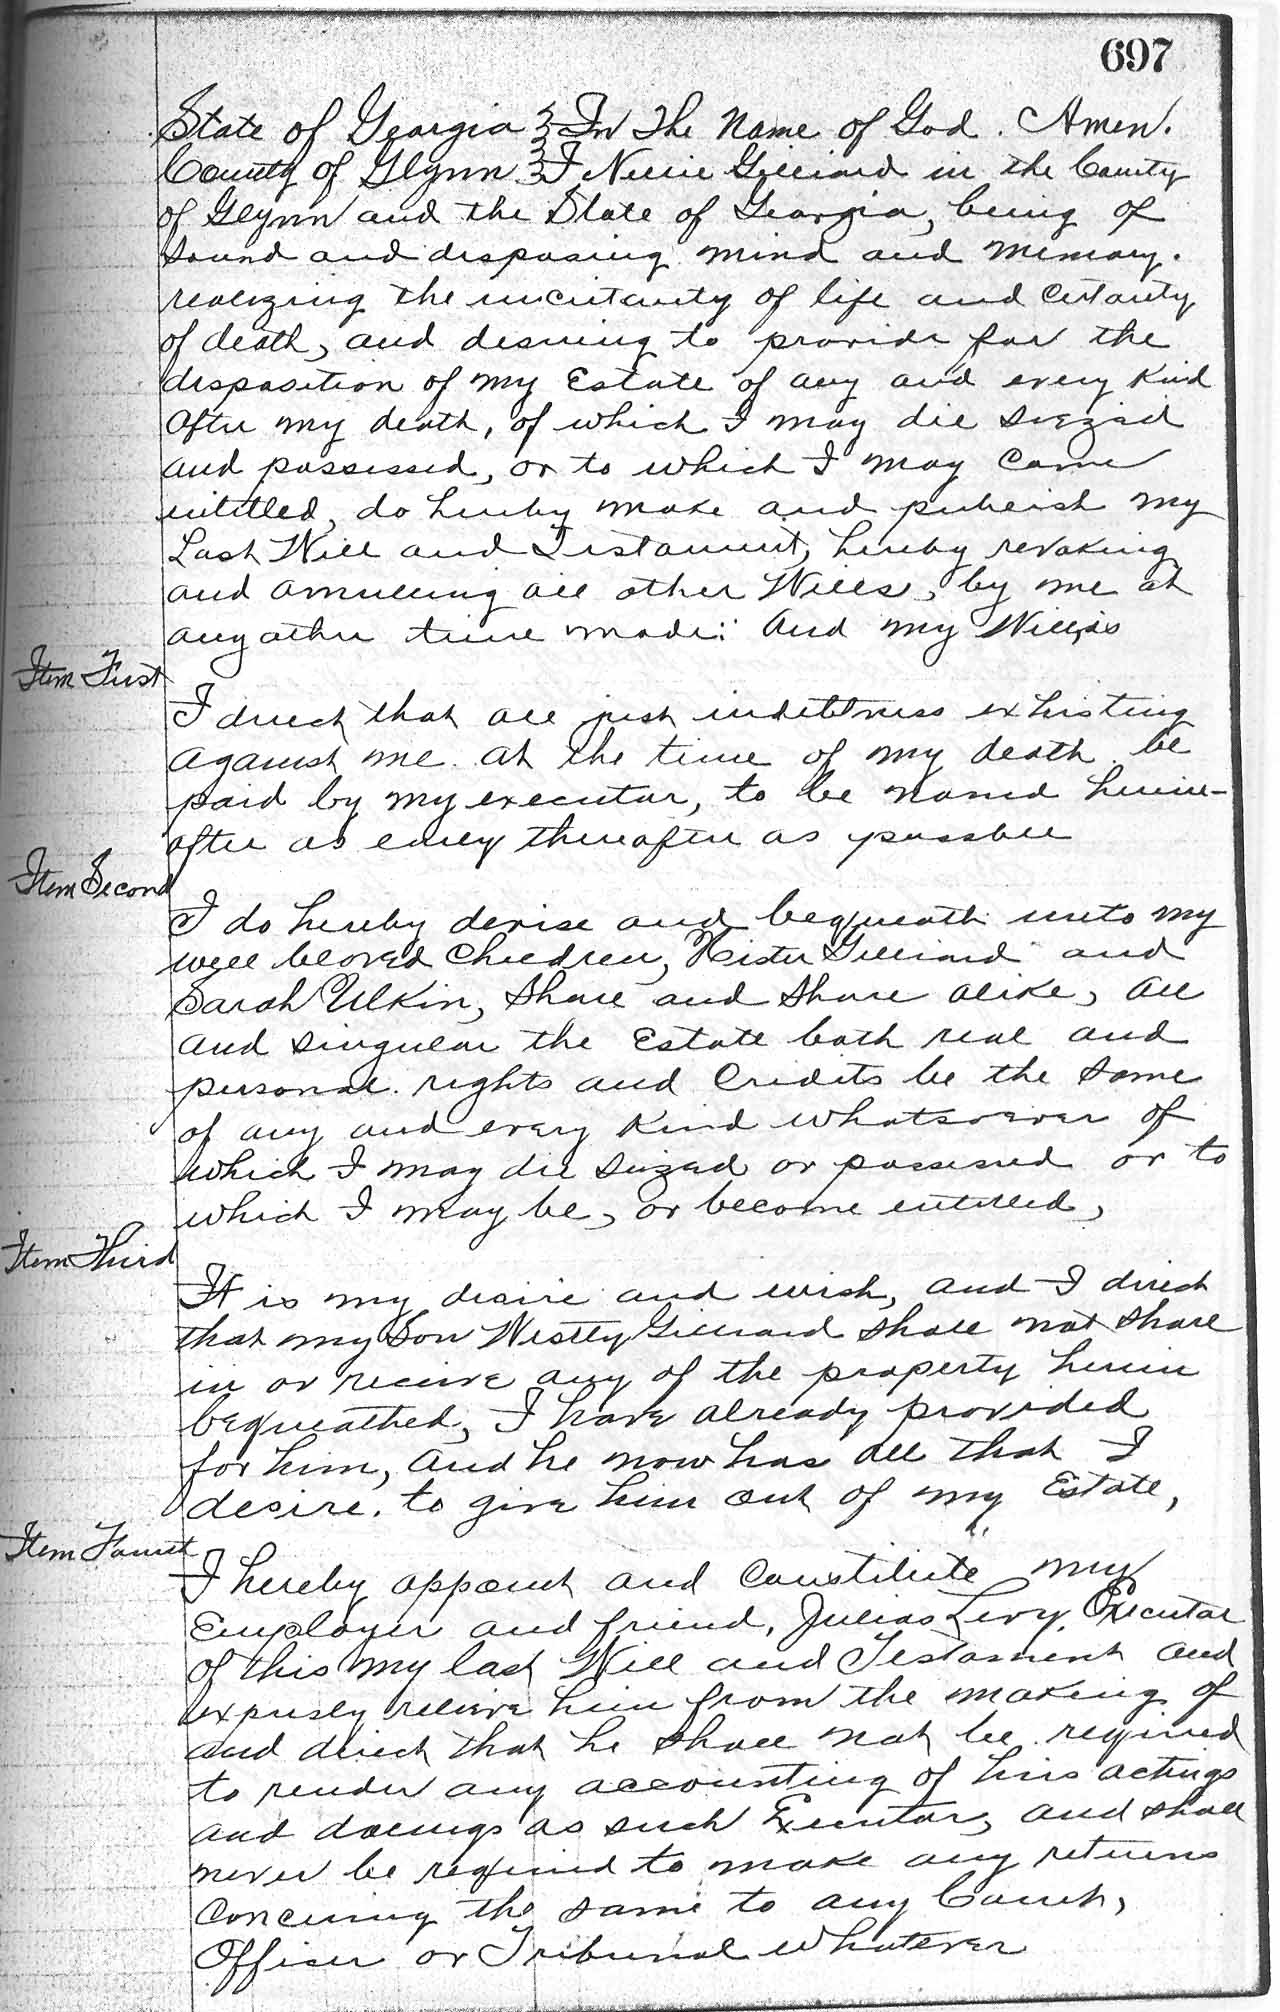 697
State of Georgia } In The Name of God. Amen.
County of Glynn } I Nellie Gilliard in the County
of Glynn and the State of Georgia, being of
sound and disposing mind and memory.
realizing the uncertainty of life and certainty
of death, and desiring to provide for the
disposition of my Estate of any and every kind
after my death, of which I may die siezed
and possessed, or to which I may come
intitled, do hereby make and publish my
Last Will and Testament, hereby revoking
and annulling all other Wills, by me at
any other time made: And my Will, is
Item First
I direct that all just indebtness exhisting
against me at the time of my death be
paid by my executor, to be named herein-
after as early thereafter as possible
Item Second
I do hereby devise and bequeath unto my
well beloved Children, Hester Gilliard and
Sarah Ulkin, share and share alike, all
and singular the Estate both real and
personal rights and Credits be the same
of any and every kind whatsoever of
which I may die seized or possessed or to
which I may be, or become entitled,
Item Third
It is my desire and wish, and I direct
that my Son Westly Gilliard shall not share
in or receive any of the property herein
bequeathed, I have already provided
for him, and he now has all that I
desire. to give him out of my Estate,
Item Fourt
I hereby appoint and Constitute my
Employer and friend, Julias Levy, Executor
of this my last Will and Testament and
expresly relieve him from the making of
and direct that he shall not be required
to render any accounting of his actings
and doeings as such Executor, and shall
never be required to make any returns
Concerning the same to any Court,
Officer or Tribunal whatever